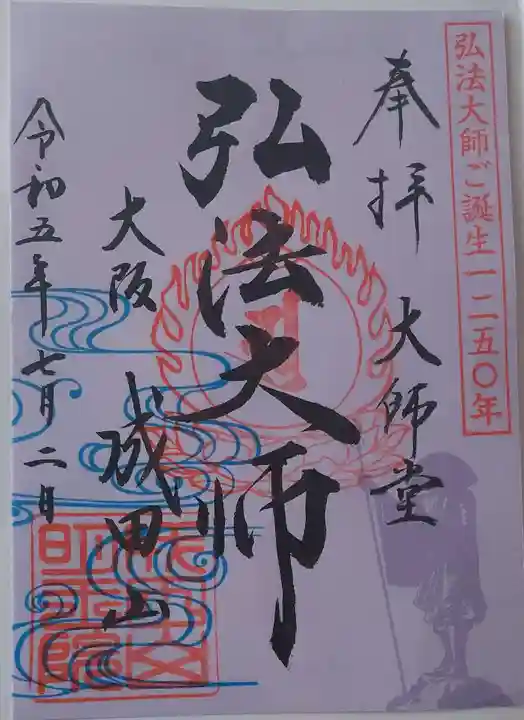 弘法大師ご誕生一二五〇年
奉拝 大師堂
弘法大師
大阪 成田山
令和五年七月二日